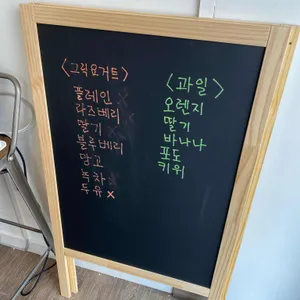 <그릭요거트>
플레인 x
라즈베리
딸기 x
블루베리
망고
녹차 x
두유 x
<과일>
오렌지
딸기
바나나
포도
키위